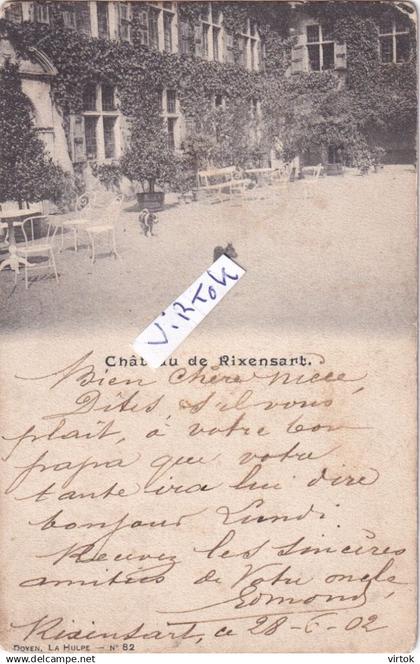 Virtok
Château de Rixensart.
Bien chère Nièce
Dites, s'il vous
plait, à votre bon
papa que votre
tante ira lui dire
bonjour Lundi.
Recevez les sincères
amitiés de Votre oncle
Edmond,
Rixensart, ce 28-6-02
DOYEN, LA HULPE — N° 82
virtok